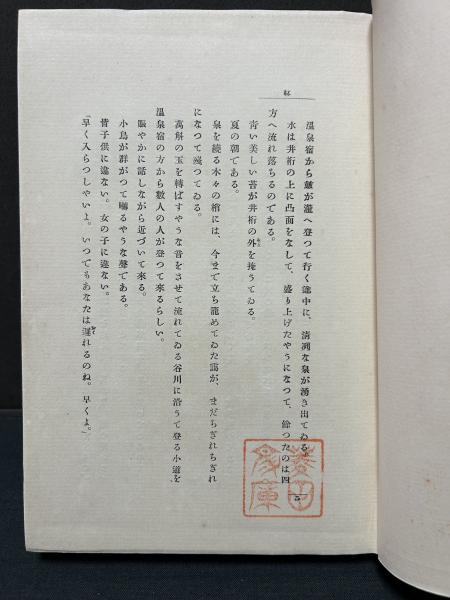 杯
温泉宿から皷が瀧へ登つて行く途中に、清冽な泉が湧き出てゐる。
水は井桁の上に凸面をなして、盛り上げたやうになつて、餘つたのは四
方へ流れ落ちるのである。
靑い美しい苔が井桁の外を掩うてゐる。
夏の朝である。
泉を繞る木々の梢には、今まで立ち籠めてゐた靄が、まだちぎれちぎれ
になつて殘つてゐる。
萬斛の玉を轉ばすやうな音をさせて流れてゐる谷川に沿うて登る小道を
溫泉宿の方から數人の人が登つて來るらしい。
賑やかに話しながら近づいて來る。
小鳥が群がつて囀るやうな聲である。
皆子供に違ない。女の子に違ない。
「早く入らつしやいよ。いつでもあなたは遲れるのね。早くよ。」